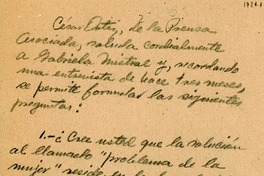 César Ortiz, de la Prensa
Asociada, saluda cordialmente
a Gabriela Mistral y, recordando
una entrevista de hace tres meses,
se permite formular las siguientes
preguntas:
1.- ¿Cree usted que la solución
al llamado "problema de la
mujer" reside en la